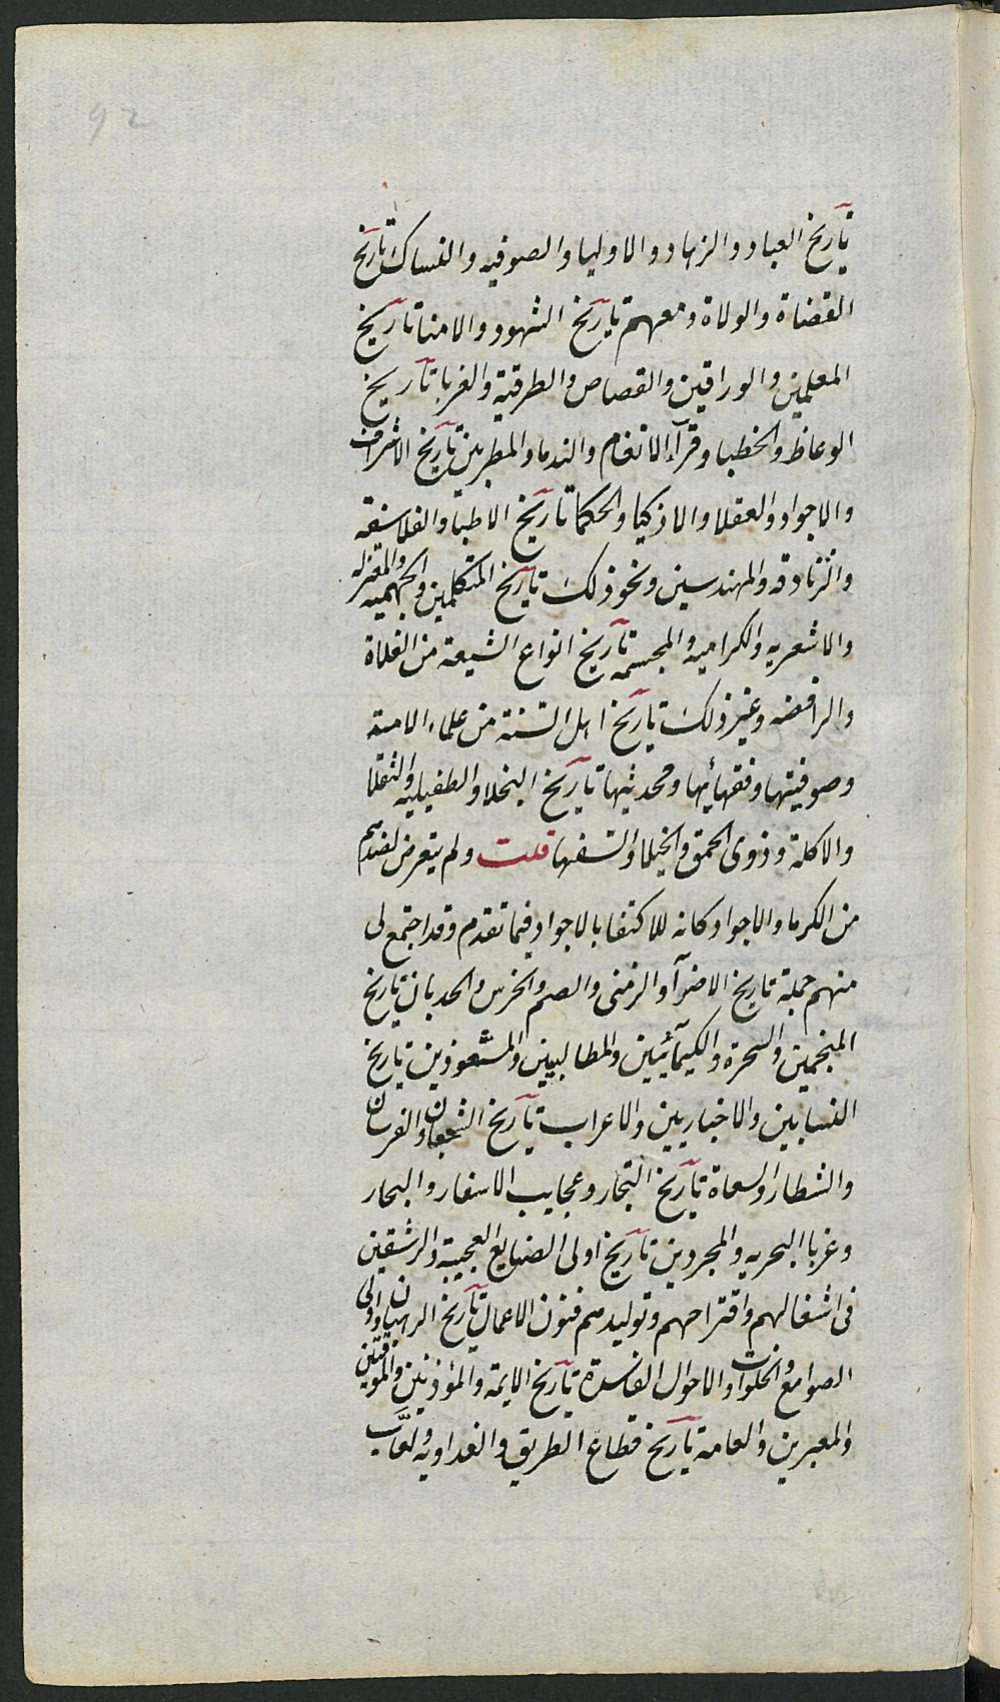 92
تاريخ العباد والزهاد والاوليا والصوفيه والنساك تاريخ
القضاة والولاة ومعهم تاريخ الشهود والامنا تاريخ
المعلمين والوراقين والقصاص والطرقية والغربا تاريخ
الوعاظ والخطبا وقرآء الانغام والندما والمطربين تاريخ الاشراف
والاجواد والعقلا والاذكيا والحكما تاريخ الاطبا والفلاسفه
والزنادقه والمهندسين ونحو ذلك تاريخ المتكلمين والجهميه والمعتزله
والاشعريه والكراميه والمجسمه تاريخ انواع الشيعة من الغلاة
والرافضه وغير ذلك تاريخ اهل السنة من علماء الامة
وصوفيتها وفقهائها ومحدثيها تاريخ البخلا والطفيليه والثقلا
والاكلة وذوى الحمق والخيلا والسفها قلت ولم يتعرض لضدهم
من الكرما والاجواد وكانه للاكتفا بالاجواد فيما تقدم وقد اجتمع لى
منهم جملة تاريخ الاضرآ والزمنى والصم والخرس والحدبان تاريخ
المنجمين والسحرة والكيمآئيين والمطالبيين والمشعوذين تاريخ
النسابين والاخباريين والاعراب تاريخ الشجعان والفرسان
والشطار والسعاة تاريخ التجار وعجايب الاسفار والبحار
وغربا البحريه والمجردين تاريخ اولى الصنايع العجيبة والرشقين
فى اشغالهم واقتراحهم وتوليدهم فنون الاعمال تاريخ الرهبان واولى
الصوامع والخلوات والاحوال الفاسدة تاريخ الايمة والمؤذنين والموقتين
والمعبرين والعامه تاريخ قطاع الطريق والفداويه ولعاب